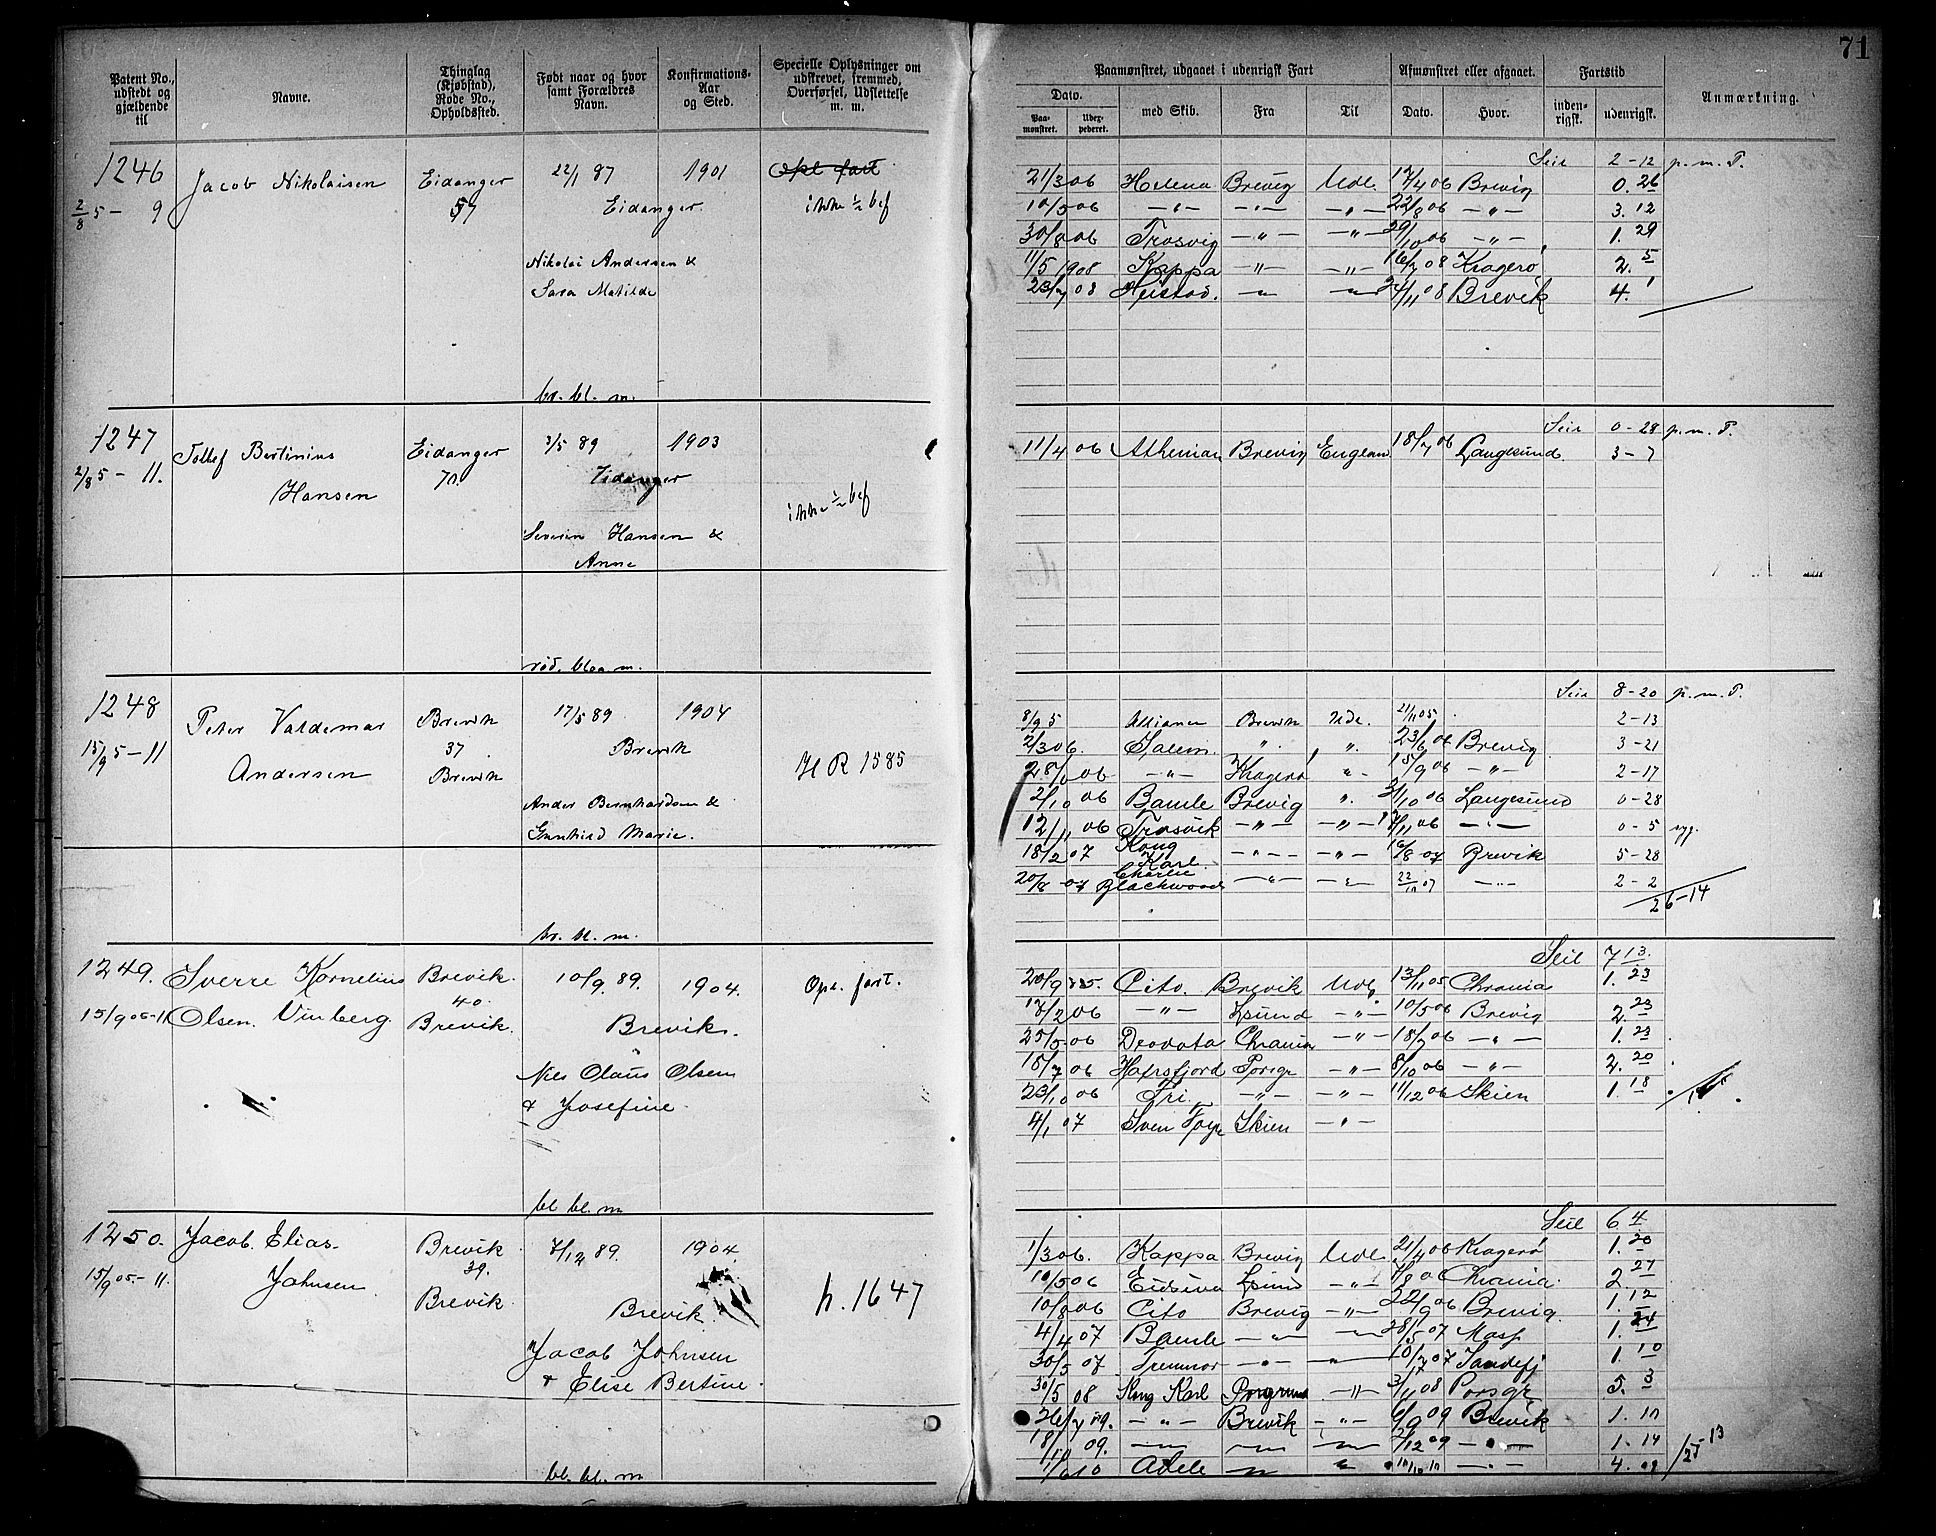 71
Patent No., udstedt og gjældende til
Navne.
Thinglag (Kjøbstad), Rode No., Opholdssted.
Født naar og hvor samt Forældres Navn.
Konfirmations- Aar og Sted.
Specielle Oplysninger om udskrevet, fremmed, Overførsel, Udslettelse m. m.
Paamønstret, udgaaet i udenrigsk Fart
Afmønstret eller afgaaet.
Fartstid
Anmærkning.
Dato.
Paa- mønstret.
Udex- pederet.
med Skib.
Fra
Til
Dato.
Hvor.
inden- rigsk.
udenrigsk.
1246 Jacob Nikolaisen Eidanger 22/1 87 1901
2/8 5 - 9 57 Eidanger ikke 1/2 bef
Nikolai Andersen &
Sara Matilde
br. bl. m.
Seil 2-12 p. m. T.
21/3 06 Helena Brevig Udl. 17/4 06 Brevig 0. 26
10/5 06 -"- -"- -"- 22/8 06 -"- 3. 12
30/8 06 Trosvig -"- -"- 29/10 06 -"- 1. 29
11/5 1908 Kappa -"- -"- 16/7 08 Kragerø 2. 5
23/7 08 Heistad. -"- -"- 24/11 08 Brevik 4. 1
1247 Tollef Bertinius Eidanger 3/5 89 1903
2/8 5 - 11. Hansen 70. Eidanger
ikke 1/2 bef
Severin Hansen &
Anne
rød. blaa m.
Seil 0-28 p. m. T.
11/4 06 Athenian Brevig Englan 18/7 06 Langesund. 3-7
1248 Peter Valdemar Brevik 17/5 89 1904
15/9 5 - 11 Andersen 37 Brevik H R 1585
Brevik
Ander Bernhardsen &
Gunhild Marie.
br. bl. m.
Seil 8-20 p. m. T.
8/9 5 Alliance Brevik Udl. 21/11 05 2-13
2/3 06. Salem. " " 23/6 06 Brevig 3-21
28/6 06 -"- Kragerø " 15/9 06 -"- 2-17
2/10 06 Bamle Brevig " 31/10 06 Langesund 0-28
12/11 06 Trosvik -"- -"- 17/11 06 -"- 0-5 syg.
18/2 07 Kong Karl -"- -"- 16/8 07 Brevik 5-28
20/8 07 Charlie Blackwood -"- -"- 22/10 07 -"- 2-2
26-14
1249. Sverre Kornelius Brevik. 10/9. 89. 1904. Opl. fart.
15/9 05-11 Olsen Vinberg. 40. Brevik. Brevik.
Niels Olaus Olsen
& Josefine.
bl bl. m
Seil 7 13.
20/9 05. Cito. Brevik Udl. 13/11 05 Chrania 1. 23
17/2 06 -"- Lsund -"- 10/5 06 Brevig 2. 23
25/5 06 Deodata Chrania -"- 18/7 06 -"- 1. 23
18/7 06 Hafrsfjord Porsgr -"- 8/10 06 -"- 2. 20
23/10 06 Fri -"- -"- 11/12 06 Skien 1. 18
4/1 07 Sven Foyn Skien -"-
1250. Jacob Elias Brevik 7/12 89. 1904.
15/9 05.-11. Johnsen 39. Brevik Brevik h. 1647
Jacob Johnsen
+ Elise Bertine.
bl. bl. m
Seil 6 4
1/3 06. Kappa Brevig Udl. 21/4 06 Kragerø 1. 20
10/5 06 Eidsiva Lsund -"- 7/8 06 Chrania. 2. 27
10/8 06 Cito Brevig -"- 22/9 06 Brevig. 1. 12
4/4 07 Bamle -"- -"- 28/5 07 Mosf 1. 24
30/5 07. Trenmor -"- -"- 10/7 07 Sandefj 1. 10
30/5 08 Kong Karl Porsgrund -"- 3/11 08 Porsgr 5. 3
26/7 09. -"- Brevik -"- 6/9 09 Brevik 1. 10
18/10 09. -"- -"- -"- 2/12 09 -"- 1. 14
1/6 10 Adele -"- " 10/10 10 -"- 4. 09
25-13